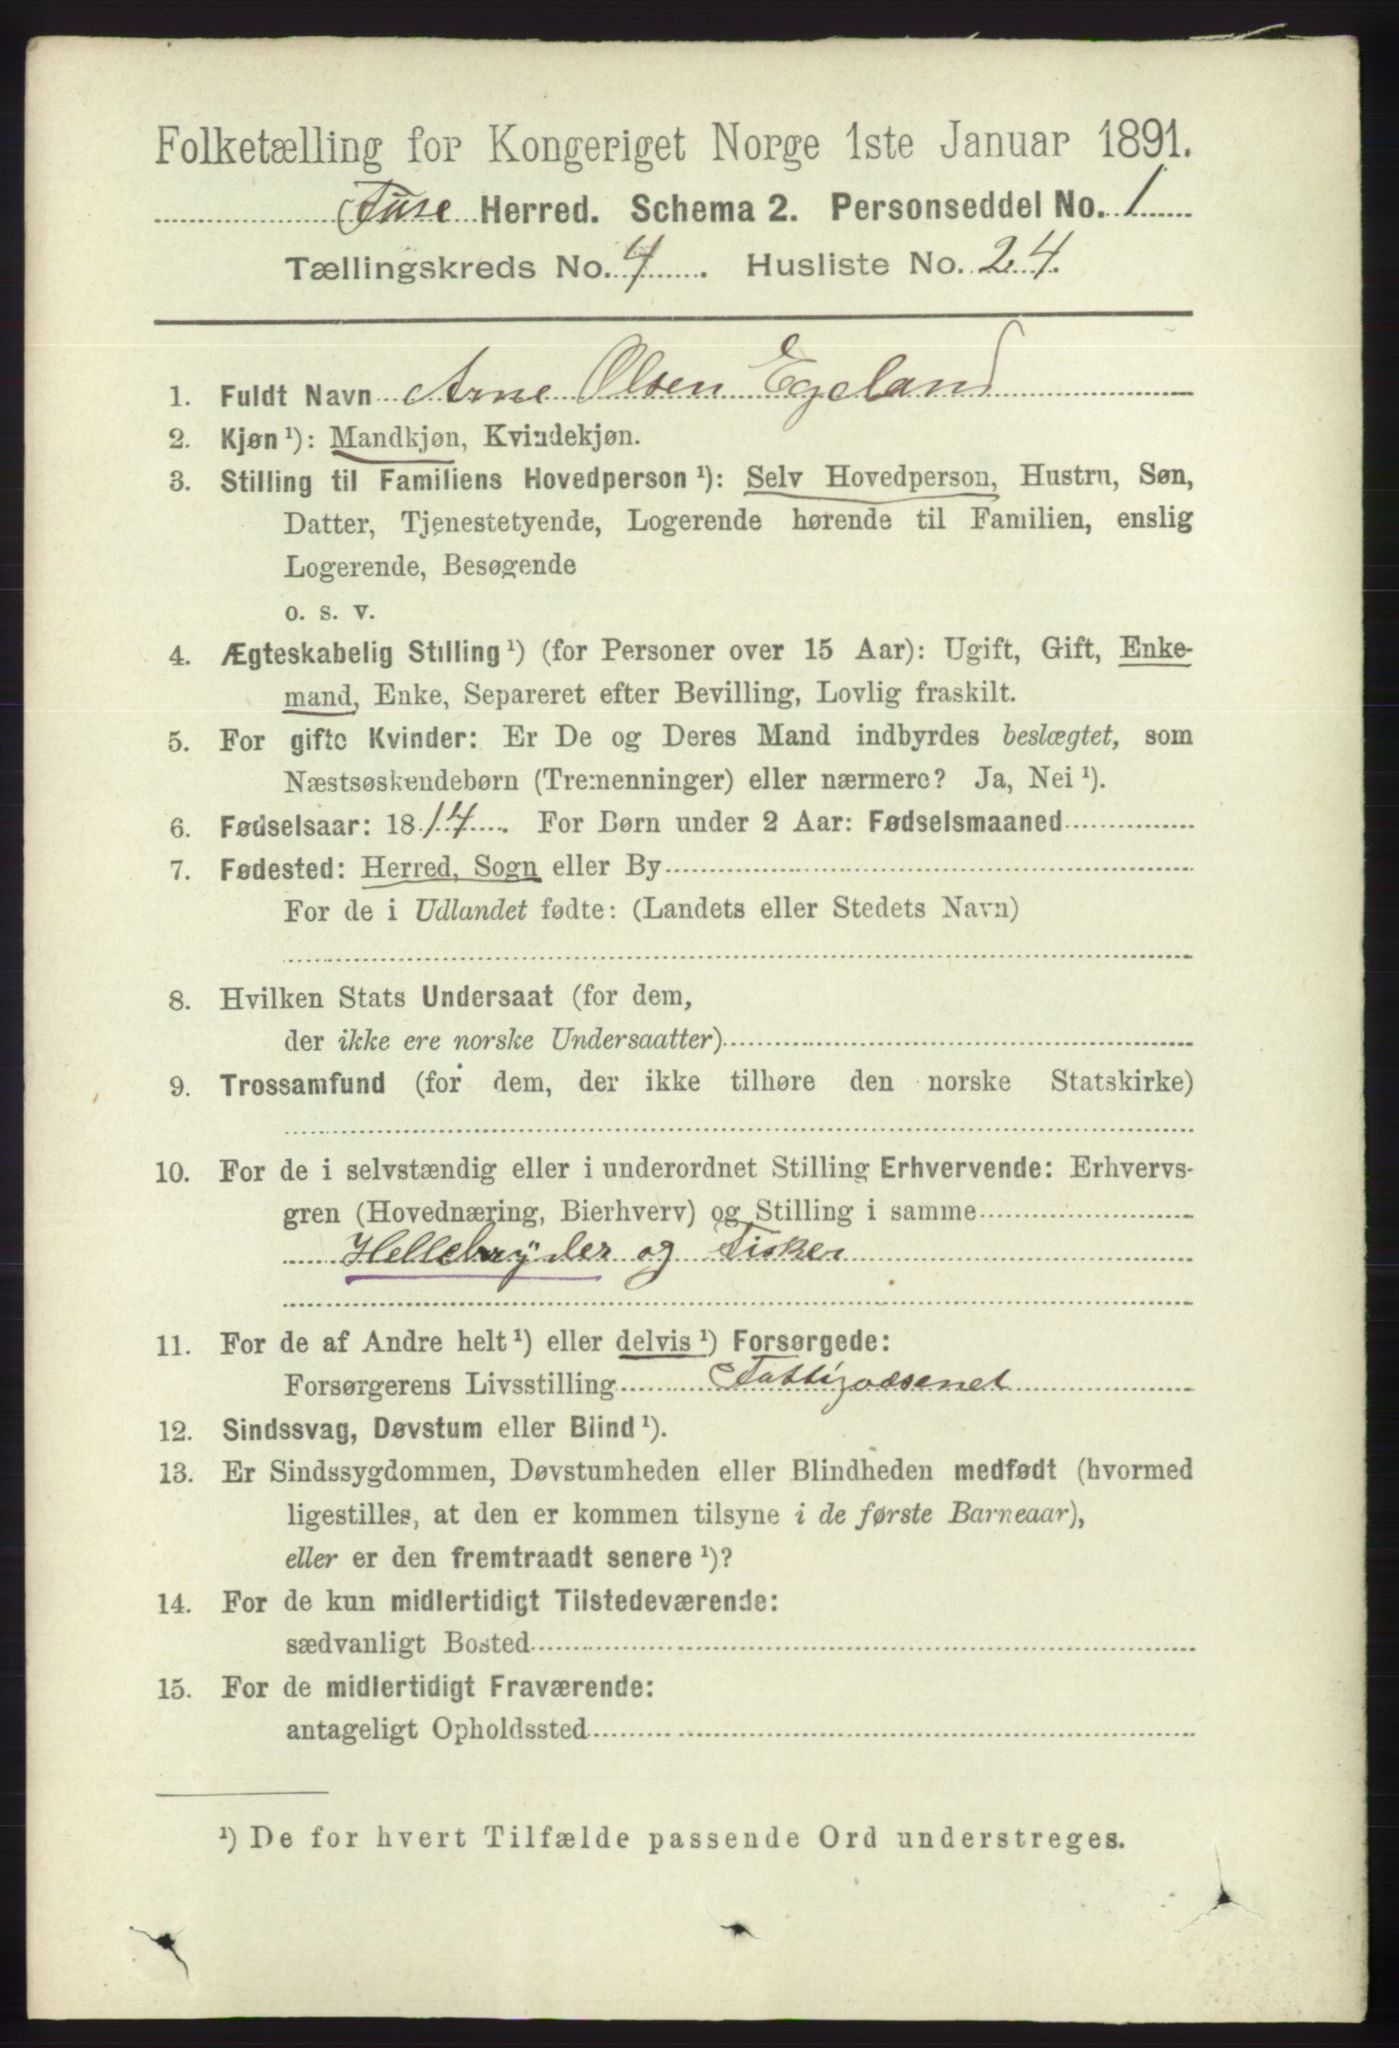 Folketælling for Kongeriget Norge 1ste Januar 1891.
Fuse Herred. Schema 2. Personseddel No. 1
Tællingskreds No. 4. Husliste No. 24
1. Fuldt Navn Arne Olsen Egeland
2. Kjøn ¹): Mandkjøn, Kvindekjøn.
3. Stilling til Familiens Hovedperson ¹): Selv Hovedperson, Hustru, Søn,
Datter, Tjenestetyende, Logerende hørende til Familien, enslig
Logerende, Besøgende
o. s. v.
4. Ægteskabelig Stilling ¹) (for Personer over 15 Aar): Ugift, Gift, Enke-
mand, Enke, Separeret efter Bevilling, Lovlig fraskilt.
5. For gifte Kvinder: Er De og Deres Mand indbyrdes beslægtet, som
Næstsøskendebørn (Tremenninger) eller nærmere? Ja, Nei ¹).
6. Fødselsaar: 1814. For Børn under 2 Aar: Fødselsmaaned
7. Fødested: Herred, Sogn eller By
For de i Udlandet fødte: (Landets eller Stedets Navn)
8. Hvilken Stats Undersaat (for dem,
der ikke ere norske Undersaatter)
9. Trossamfund (for dem, der ikke tilhøre den norske Statskirke)
10. For de i selvstændig eller i underordnet Stilling Erhvervende: Erhvervs-
gren (Hovednæring, Bierhverv) og Stilling i samme
Hellebryder og Fisker
11. For de af Andre helt ¹) eller delvis ¹) Forsørgede:
Forsørgerens Livsstilling Fattigvæsenet
12. Sindssvag, Døvstum eller Blind ¹).
13. Er Sindssygdommen, Døvstumheden eller Blindheden medfødt (hvormed
ligestilles, at den er kommen tilsyne i de første Barneaar),
eller er den fremtraadt senere ¹)?
14. For de kun midlertidigt Tilstedeværende:
sædvanligt Bosted
15. For de midlertidigt Fraværende:
antageligt Opholdssted
¹) De for hvert Tilfælde passende Ord understreges.